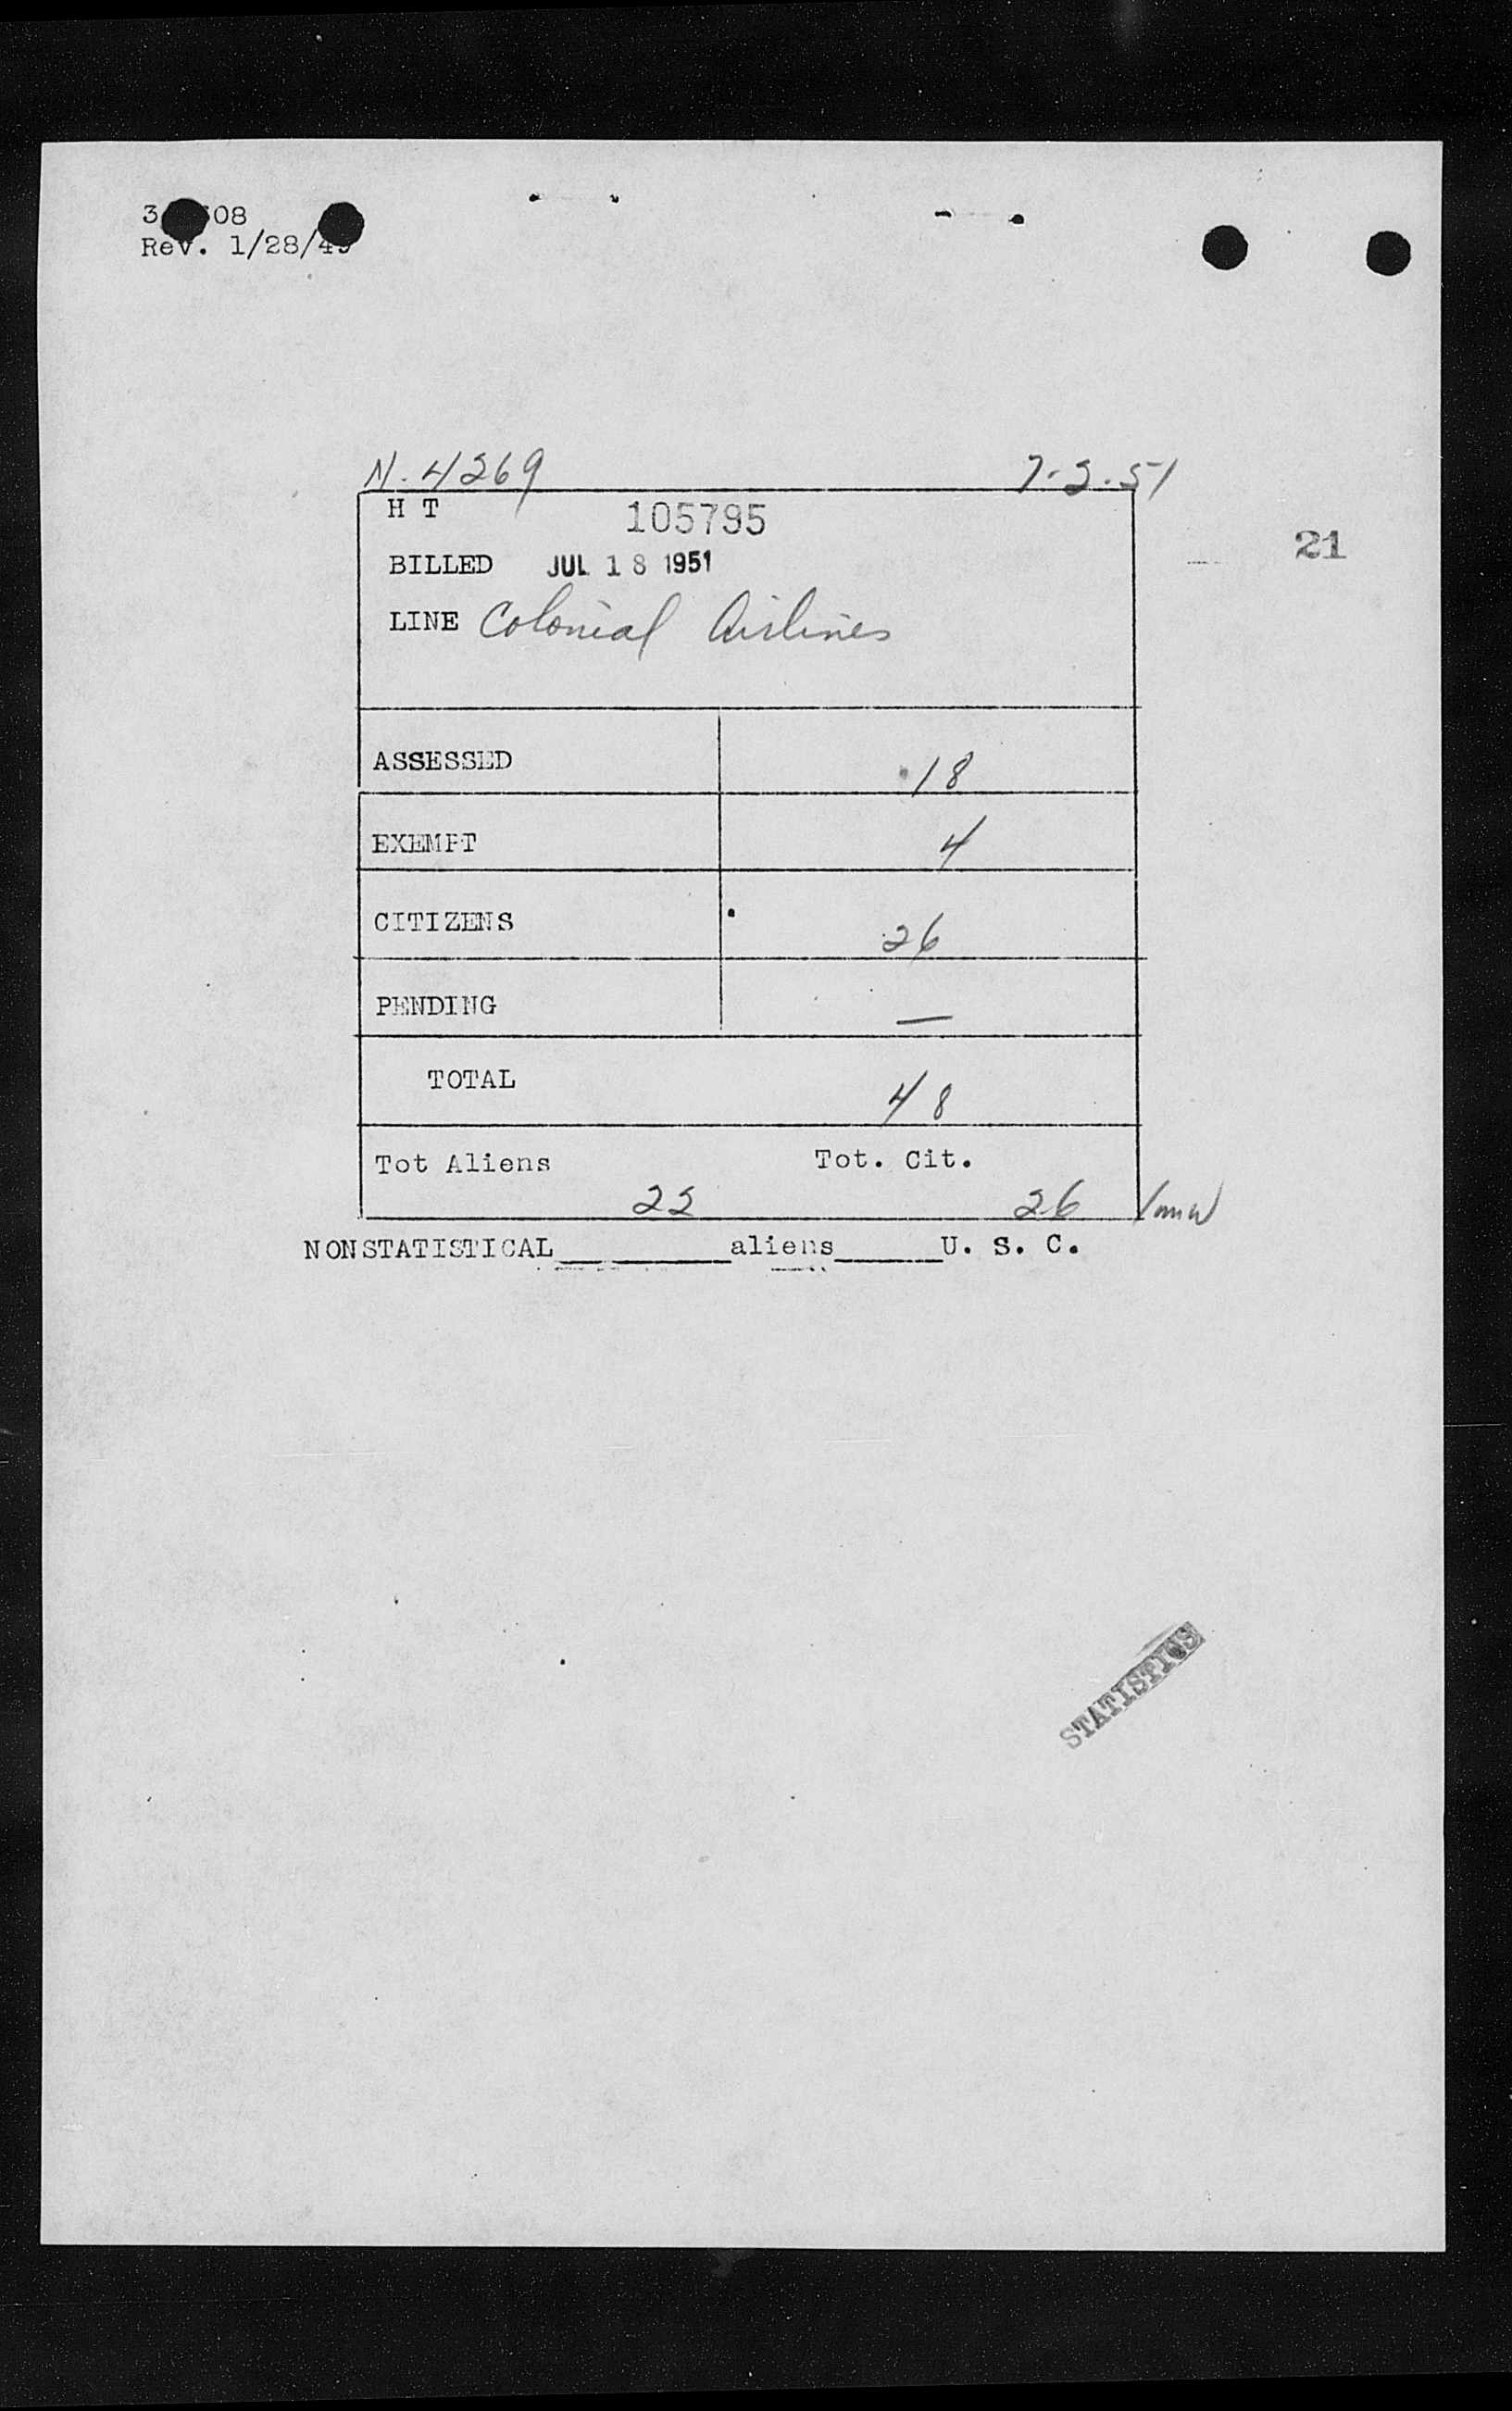 Rev. 1/28/49
N. 4269 7-2-51
H T 105795
21
BILLED JUL 18 1951
LINE Colonial Airlines
ASSESSED 18
EXEMPT 4
CITIZENS 26
PENDING —
TOTAL 48
Tot Aliens Tot. Cit.
22 26
NONSTATISTICAL________aliens_____U. S. C.
STATISTICS